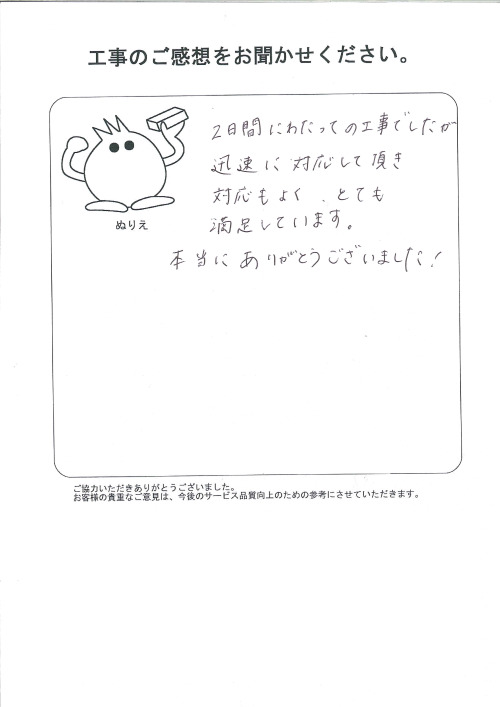 工事のご感想をお聞かせください。
2日間にわたっての工事でしたが
迅速に対応して頂き
対応もよく、とても
満足しています。
本当にありがとうございました!
ぬりえ
ご協力いただきありがとうございました。
お客様の貴重なご意見は、今後のサービス品質向上のための参考にさせていただきます。